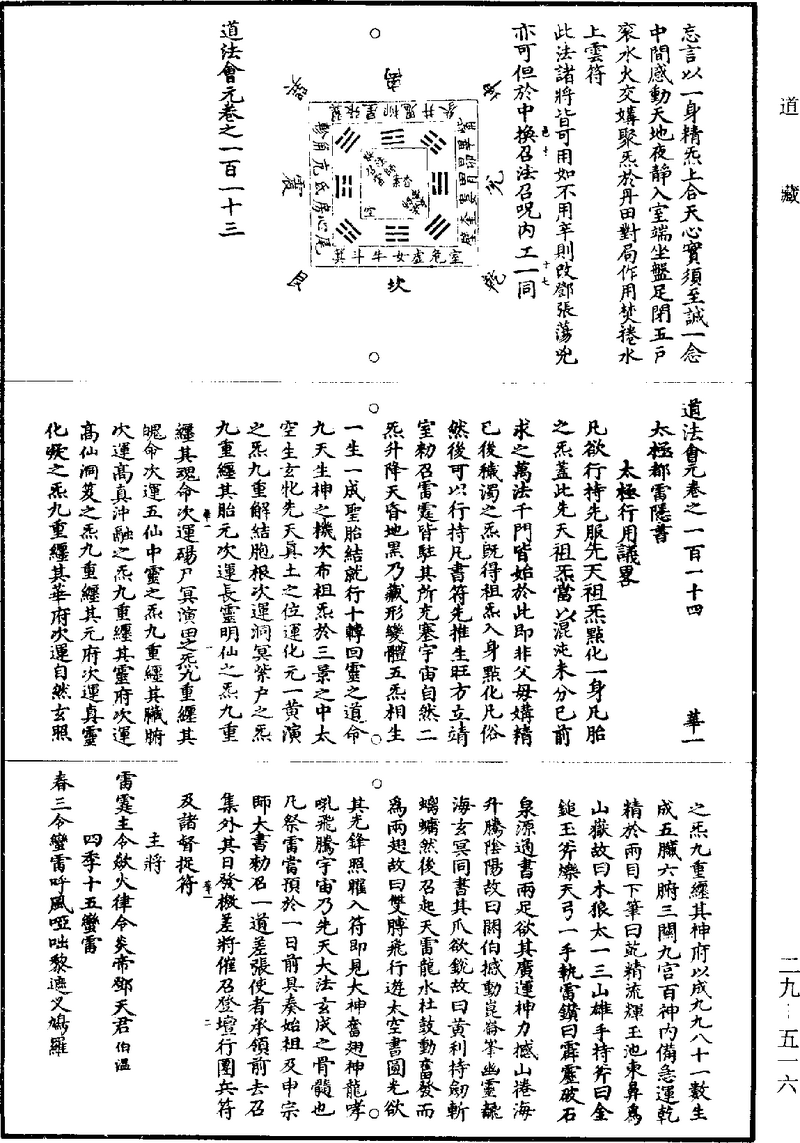 道藏
忘言以一身精炁上合天心實須至誠一念
中間感動天地夜靜入室端坐盤足閉五戶
寀水火交媾聚炁於丹田對局作用焚捲水
上雲符
此法諸將皆可用如不用辛則改鄧張蕩兇
亦可但於中換召法召呪內工一同
南
兌
乾
坎
艮
震
巽
室危虛女牛斗箕
道法會元卷之一百一十三
道法會元卷之一百一十四
華一
太極都雷隱書
太極行用議畧
凡欲行持先服先天祖炁點化一身凡胎
之炁蓋此先天祖炁當以混沌未分已前
求之萬法千門皆始於此即非父母媾精
已後穢濁之炁既得祖炁入身點化凡俗
然後可以行持凡書符先推生旺方立靖
室勑召雷霆皆駐其所充塞宇宙自然二
炁升降天昏地黑乃藏形變體五炁相生
一生一成聖胎結就行十轉回靈之道命
九天生神之機次布祖炁於三景之中太
空生玄牝先天真土之位運化元一黃演
之炁九重解結胞根次運洞冥紫戶之炁
九重纏其胎元次運長靈明仙之炁九重
纏其魂命次運碭尸冥演由之炁九重纏其
魄命次運五仙中靈之炁九重纏其臟腑
次運高真沖融之炁九重纏其靈府次運
高仙洞笈之炁九重纏其元府次運真靈
化凝之炁九重纏其華府次運自然玄照
之炁九重纏其神府以成九九八十一數生
成五臟六腑三關九宮百神內備急運乾
精於兩目下筆曰乾精流輝玉池東鼻為
山嶽故曰木狼太一三山雄手持斧曰金
鎚玉斧爍天弓一手執雷鑽曰霹靂破石
泉源通書兩足欲其廣運神力撼山捲海
升騰陰陽故曰闕伯撼動崑崙峯幽靈翻
海玄冥同書其爪欲銳故曰黃利持劒斬
蝺蠣然後召起天雷龍水社鼓動奮發而
為兩翅故曰雙髆飛行遊太空書圓光欲
其光鋒照耀入符即見大神奮翅神龍哮
吼飛騰宇宙乃先天大法玄成之骨髓也
凡祭雷當預於一日前具奏始祖及申宗
師大書勑召一道差張使者承領前去召
集外其日發檄差將催召登壇行圍兵符
及諸督捉符
主將
雷霆主令欻火律令炎帝鄧天君伯溫
四季十五蠻雷
春三令蠻雷呼風啞咄黎遮乂鳩羅
二九—五一六